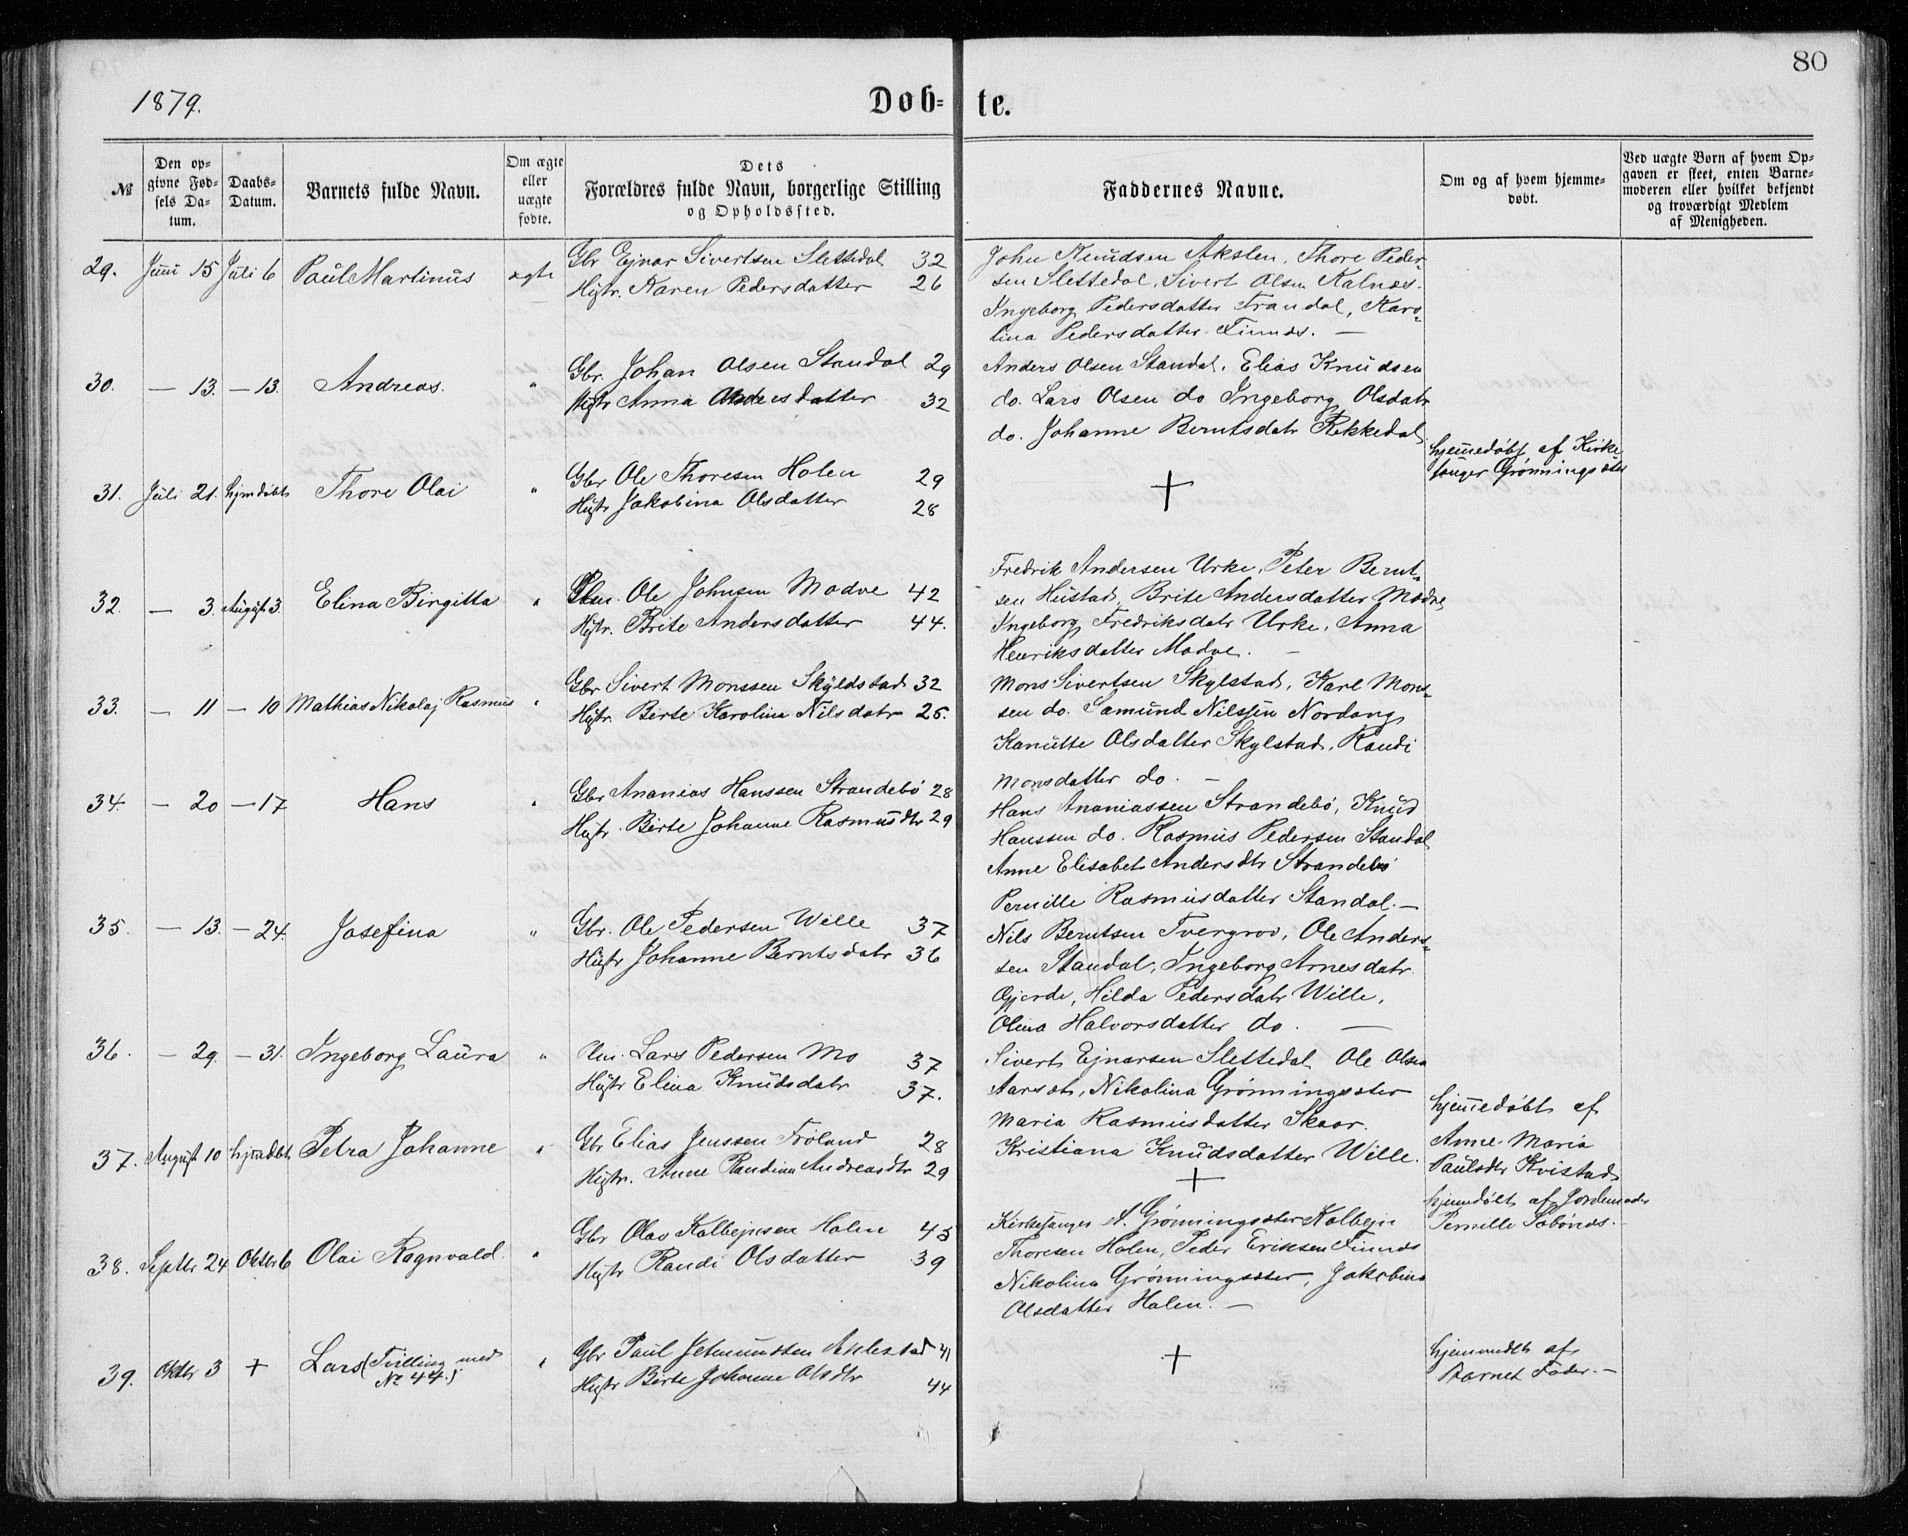 80
1879.
Døb- te.
№
Den op-
givne Fød-
sels Da-
tum.
Daabs-
Datum.
Barnets fulde Navn.
Om ægte
eller
uægte
fødte.
Dets
Forældres fulde Navn, borgerlige Stilling
og Opholdssted.
Faddernes Navne.
Om og af hvem hjemme-
døbt.
Ved uægte Børn af hvem Op-
gaven er skeet, enten Barne-
moderen eller hvilket bekjendt
og troværdigt Medlem
af Menigheden.
29. Juni 15 Juli 6 Paul Martinus ægte
Gbr Ejnar Sivertsen Slettedal 32
Hustr. Karen Pedersdatter 26
John Knudsen Akslen, Thore Peder-
sen Slettedal, Sivert Olsen Kalnæs.
Ingeborg Pedersdatter Frandal, Karo-
lina Pedersdatter Finnes. —
30. — 13. — 13. Andreas. "
Gbr. Johan Olsen Standal 29
Hustr Anna datter 32
Anders Olsen Standal, Elias Knudsen
do. Lars Olsen do Ingeborg Olsdatr
do. Johanne Berntsdatr Rekkedal
31. Juli 21. hjmdøbt Thore Olai "
Gbr Ole Thoresen Holen 29
Hustr Jakobina Olsdatter 28
+
hjemmedøbt af Kirke
sanger Grønningsæter
32. — 3. August 3. Elina Birgitta "
Plm. Ole Johnsen Modve 42
Hustr. Brite Andersdatter 44.
Fredrik Andersen Urke, Peter Bernt-
sen Hustad, Brite Andersdatter Modve
Ingeborg Fredriksdatr Urke, Anna
Henriksdatter Modve. —
33. — 11 — 10 Mathias Nikolaj Rasmus "
Gbr Sivert Monssen Skyldstad 32
Hustr. Birte Karolina Nilsdatr 25.
Mons Sivertsen Skylstad, Karl Mons-
sen do. Samund Nilssen Nordang
Kanutte Olsdatter Skylstad, Randi
Monsdatter do. —
34. — 20 — 17 Hans "
Gbr Ananias Hanssen Strandebø 28
Hustr. Birte Johanne Rasmusdtr 29
Hans Ananiassen Strandebø, Knud
Hanssen do. Rasmus Pedersen Standal
Anne Elisabet Andersdtr Strandebø
Pernille Rasmusdatter Standal. —
35. — 13. — 24. Josefina "
Gbr. Ole Pedersen Wille 37
Hustr Johanne Berntsdatr 36
Nils Berntsen Tvergrov, Ole Anders-
sen Standal, Ingeborg Arnesdatr
Gjerde, Hilda Pedersdatr Wille,
Olina Halvorsdatter do. —
36. — 29. — 31. Ingeborg Laura "
Plm. Lars Pedersen Mo 37
Hustr Elina Knudsdatr 37.
Sivert Ejnarsen Slettedal Ole Olsen
Aarsæt, Nikolina Grønningsæter
Maria Rasmusdatter Skaar.
Kristiana Knudsdatter Wille.
37. August 10 hjmdøbt Petra Johanne "
Gbr Elias Jenssen Frøland 28
Hustr. Anne Randina Andreasdtr 29
+
hjemmedøbt af
Anne Maria
Paulsdtr Kvistad
38. Septbr 24 Oktbr 6 Olai Ragnvald. "
Gbr Olav Kolbejnsen Holen 45
Hustr Randi Olsdatter 39
Kirkesanger A. Grønningsæter Kolbejn
Thoresen Holen, Peder Eriksen Finnes
Nikolina Grønningsæter, Jakobina
Olsdatter Holen. —
hjemmedøbt af Jordemoder
Pernille Sæbønes. —
39. Oktbr 3 + Lars (Tvilling med
№ 44.) "
Gbr Paul Jetmundsen Aklestad 41
Hustr Birte Johanne Olsdtr 44
+
hjemmedbt af
Barnets Fader. —